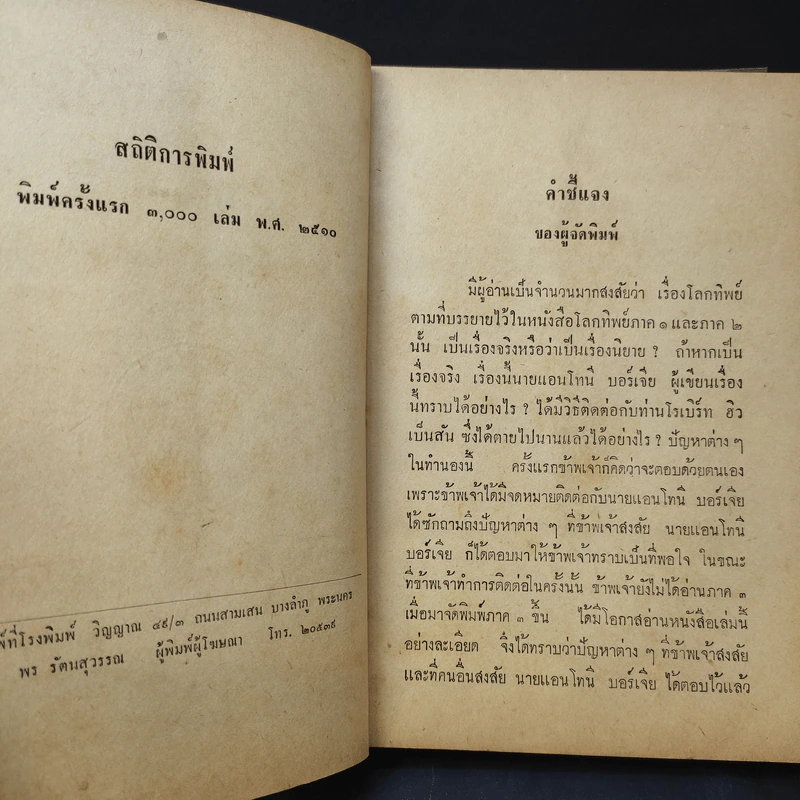 สถิติการพิมพ์
พิมพ์ครั้งแรก ๓,๐๐๐ เล่ม พ.ศ. ๒๕๑๐
ที่โรงพิมพ์ วิญญาณ ๔๙/๓ ถนนสามเสน บางลำภู พระนคร
พร รัตนสุวรรณ ผู้พิมพ์ผู้โฆษณา โทร. ๒๐๕๓๙
คำชี้แจง
ของผู้จัดพิมพ์
มีผู้อ่านเป็นจำนวนมากสงสัยว่า เรื่องโลกทิพย์
ตามที่บรรยายไว้ในหนังสือโลกทิพย์ภาค ๑ และภาค ๒
นั้น เป็นเรื่องจริงหรือว่าเป็นเรื่องนิยาย ? ถ้าหากเป็น
เรื่องจริง เรื่องนี้นายแอนโทนี บอร์เจีย ผู้เขียนเรื่อง
นี้ทราบได้อย่างไร ? ได้มีวิธีติดต่อกับท่านโรเบิร์ท ฮิว
เบ็นสัน ซึ่งได้ตายไปนานแล้วได้อย่างไร ? ปัญหาต่าง ๆ
ในทำนองนี้ ครั้งแรกข้าพเจ้าก็คิดว่าจะตอบด้วยตนเอง
เพราะข้าพเจ้าได้มีจดหมายติดต่อกับนายแอนโทนี บอร์เจีย
ได้ซักถามถึงปัญหาต่าง ๆ ที่ข้าพเจ้าสงสัย นายแอนโทนี
บอร์เจีย ก็ได้ตอบมาให้ข้าพเจ้าทราบเป็นที่พอใจ ในขณะ
ที่ข้าพเจ้าทำการติดต่อในครั้งนั้น ข้าพเจ้ายังไม่ได้อ่านภาค ๓
เมื่อมาจัดพิมพ์ภาค ๓ ขึ้น ได้มีโอกาสอ่านหนังสือเล่มนี้
อย่างละเอียด จึงได้ทราบว่าปัญหาต่าง ๆ ที่ข้าพเจ้าสงสัย
และที่คนอื่นสงสัย นายแอนโทนี บอร์เจีย ได้ตอบไว้แล้ว